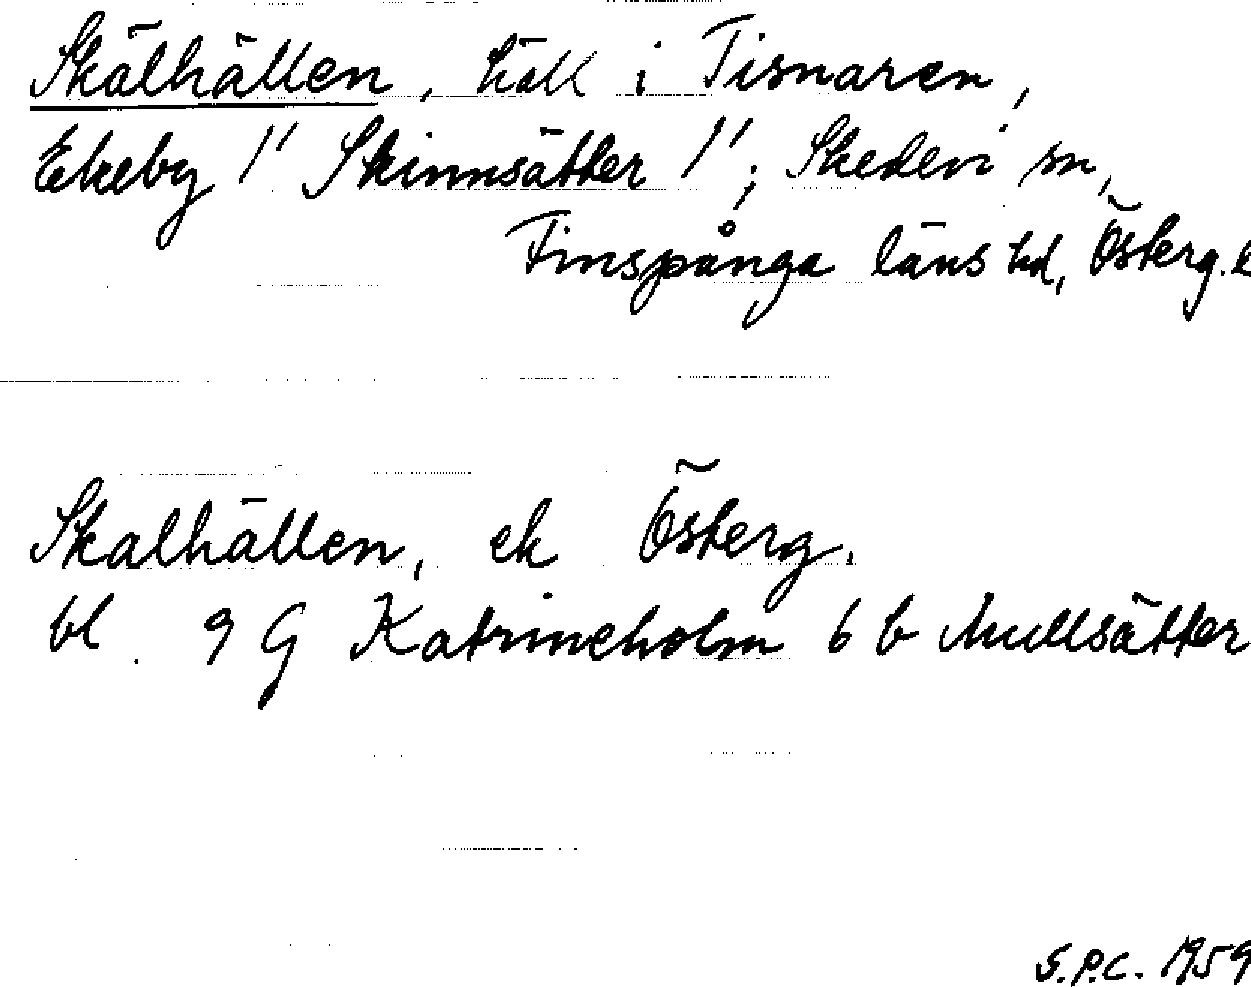 Skälhällen, häll i Tisnaren,
Ekeby 1' Skinnsätter 1', Skedevi sn,
Finspånga läns hd, Österg. l
Skalhällen, ek Österg.
bl. 9 G Katrineholm 6 b Mullsätter
S.P.C. 1959